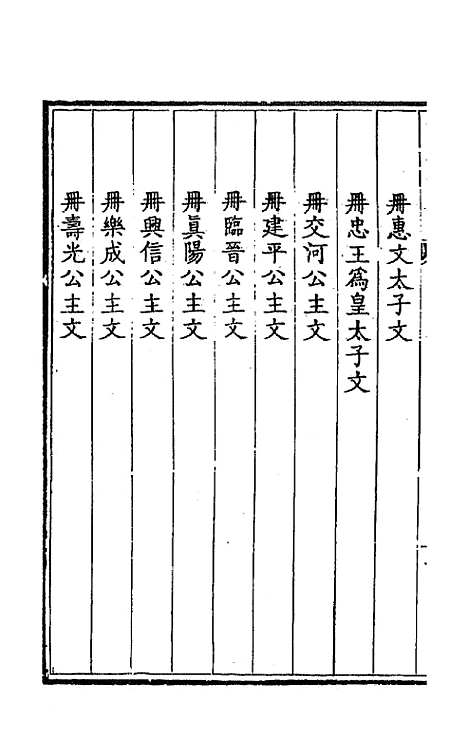 冊惠文太子文
冊忠王爲皇太子文
冊交河公主文
冊建平公主文
冊臨晉公主文
冊眞陽公主文
冊興信公主文
冊樂成公主文
冊壽光公主文